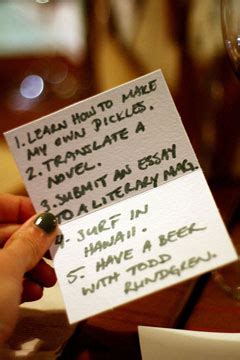 1. LEARN HOW TO MAKE
MY OWN PICKLES.
2. TRANSLATE A
NOVEL.
3. SUBMIT AN ESSAY
TO A LITERARY MAG.
4. SURF IN
HAWAII.
5. HAVE A BEER
WITH TODD
RUNDGREN.